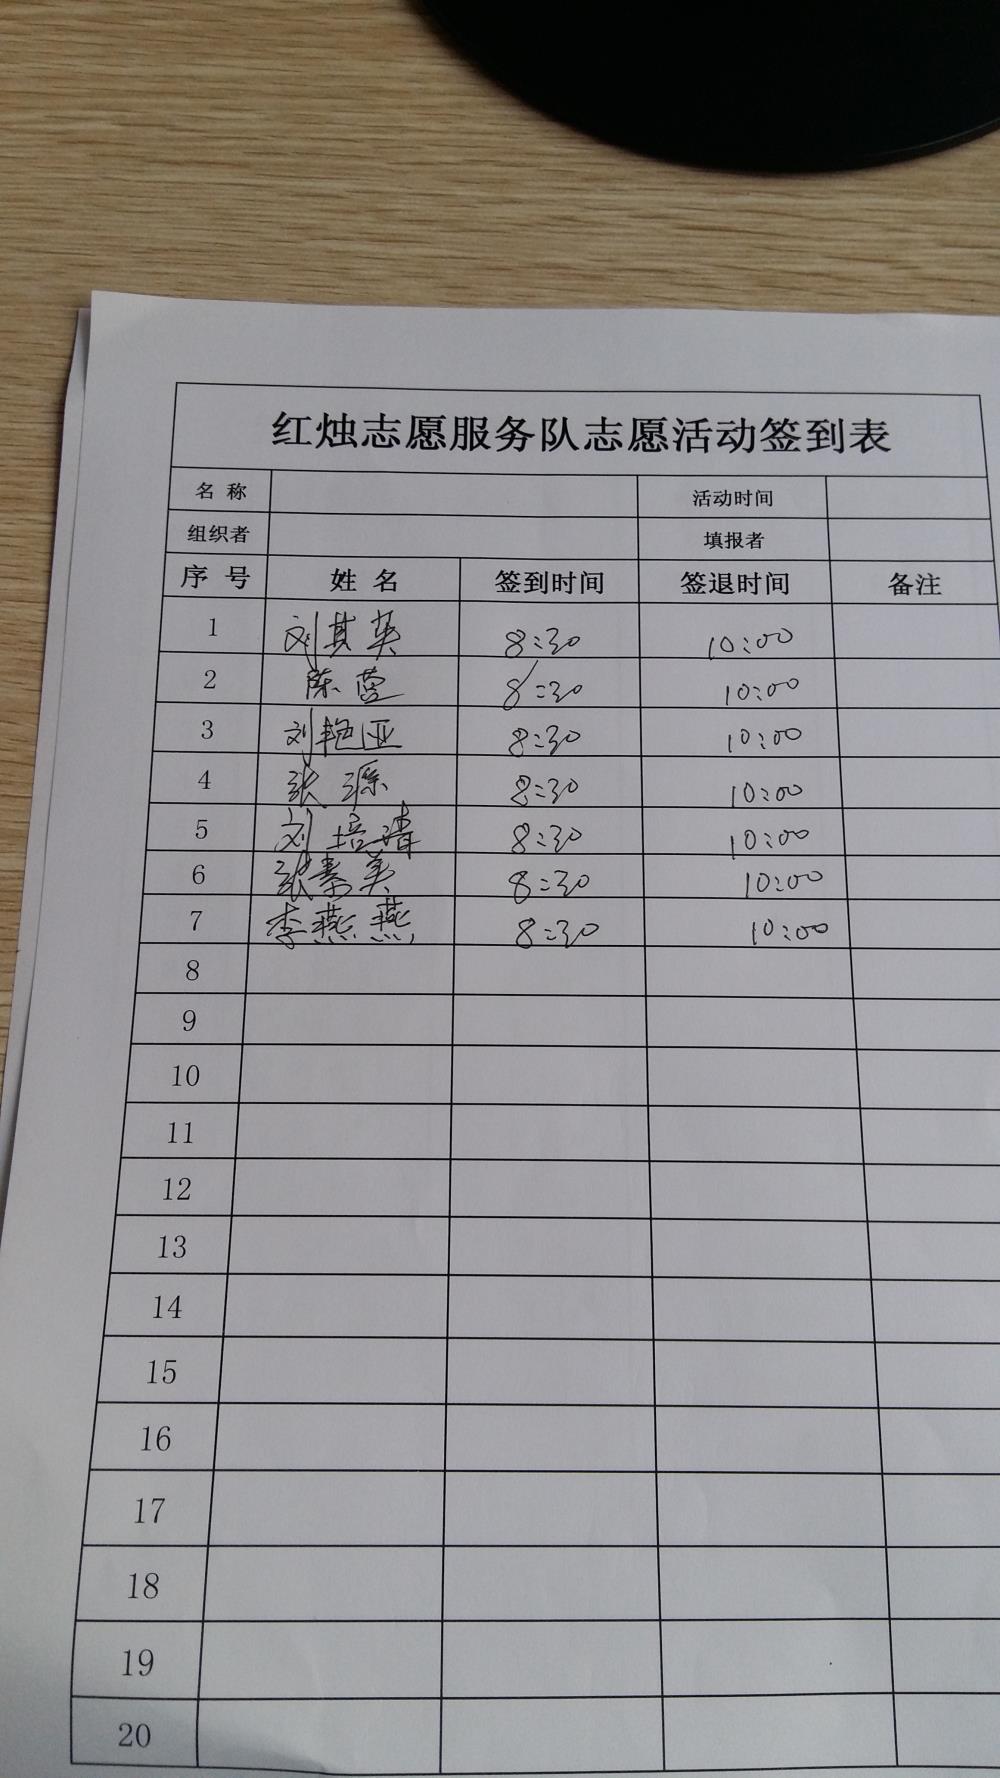 红烛志愿服务队志愿活动签到表
名 称 活动时间
组织者 填报者
序 号 姓 名 签到时间 签退时间 备注
1 刘其英 8:30 10:00
2 陈莹 8:30 10:00
3 刘艳亚 8:30 10:00
4 张 8:30 10:00
5 刘培清 8:30 10:00
6 张秦英 8:30 10:00
7 李燕燕 8:30 10:00
8
9
10
11
12
13
14
15
16
17
18
19
20